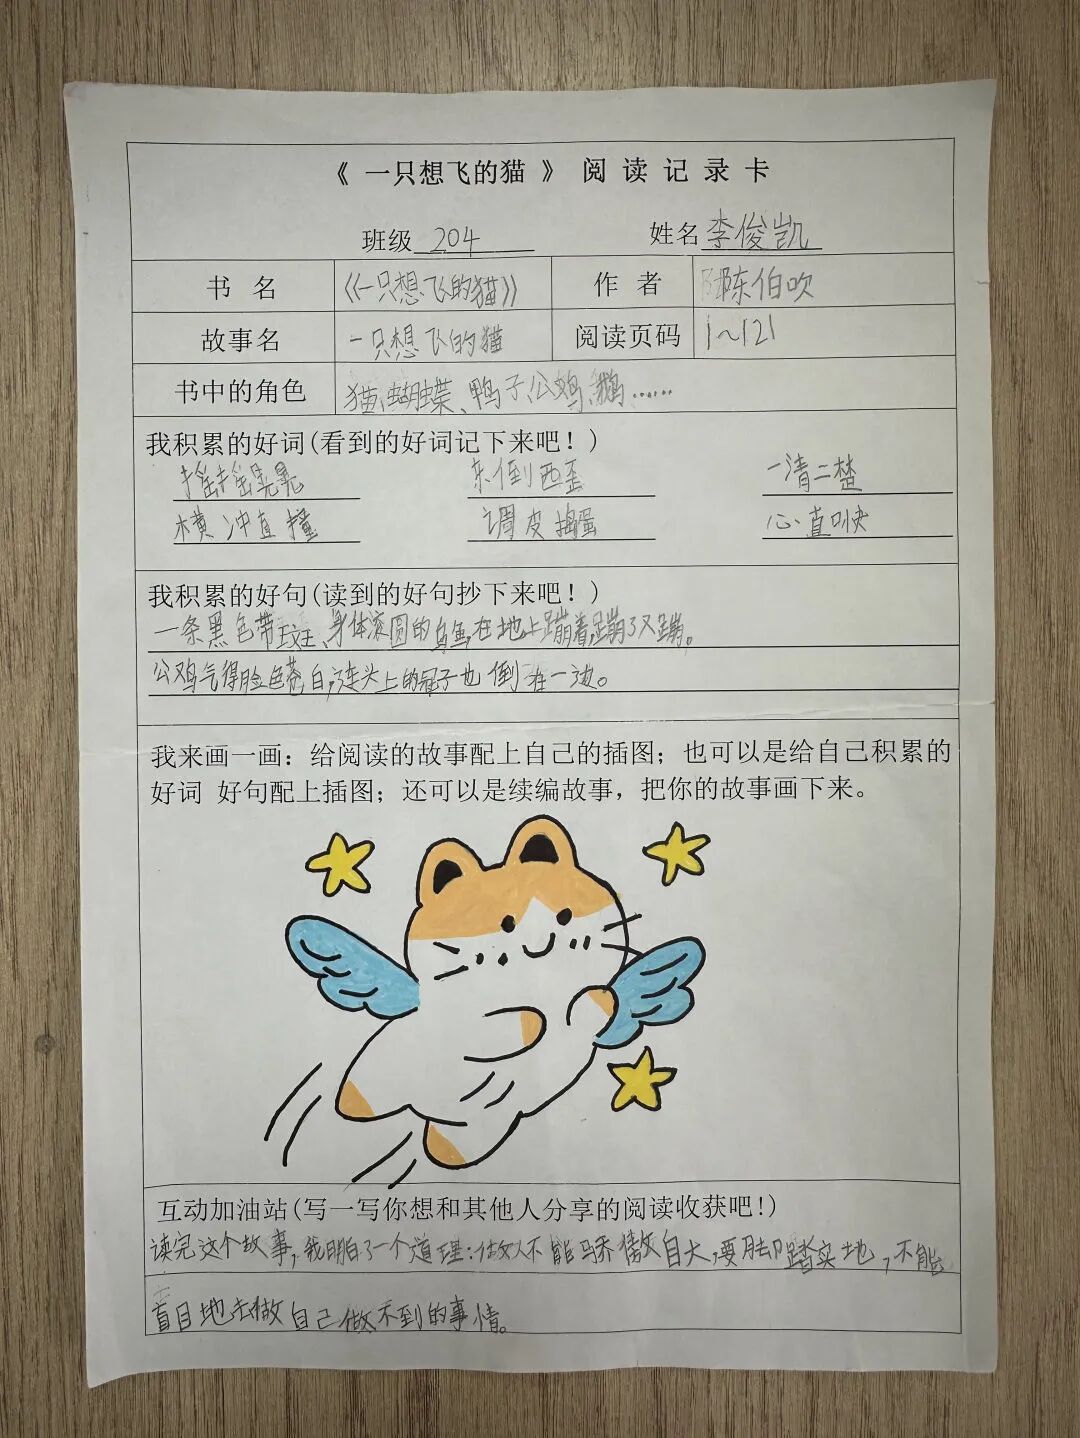 《 一只想飞的猫 》 阅 读 记 录 卡
班级 204 姓名 李俊凯
书 名 《一只想飞的猫》 作 者 陈伯吹
故事名 一只想飞的猫 阅读页码 1~121
书中的角色 猫、蝴蝶、鸭子、公鸡、鹅……
我积累的好词(看到的好词记下来吧！)
摇摇晃晃 东倒西歪 一清二楚
横冲直撞 调皮捣蛋 心直口快
我积累的好句(读到的好句抄下来吧！)
一条黑色带斑、身体滚圆的乌鱼,在地上蹦着,蹦了又蹦。
公鸡气得脸色苍白,连头上的冠子也倒在一边。
我来画一画：给阅读的故事配上自己的插图；也可以是给自己积累的
好词 好句配上插图；还可以是续编故事，把你的故事画下来。
互动加油站(写一写你想和其他人分享的阅读收获吧!)
读完这个故事,我明白了一个道理:做人不能骄傲自大,要脚踏实地,不能
盲目地去做自己做不到的事情。